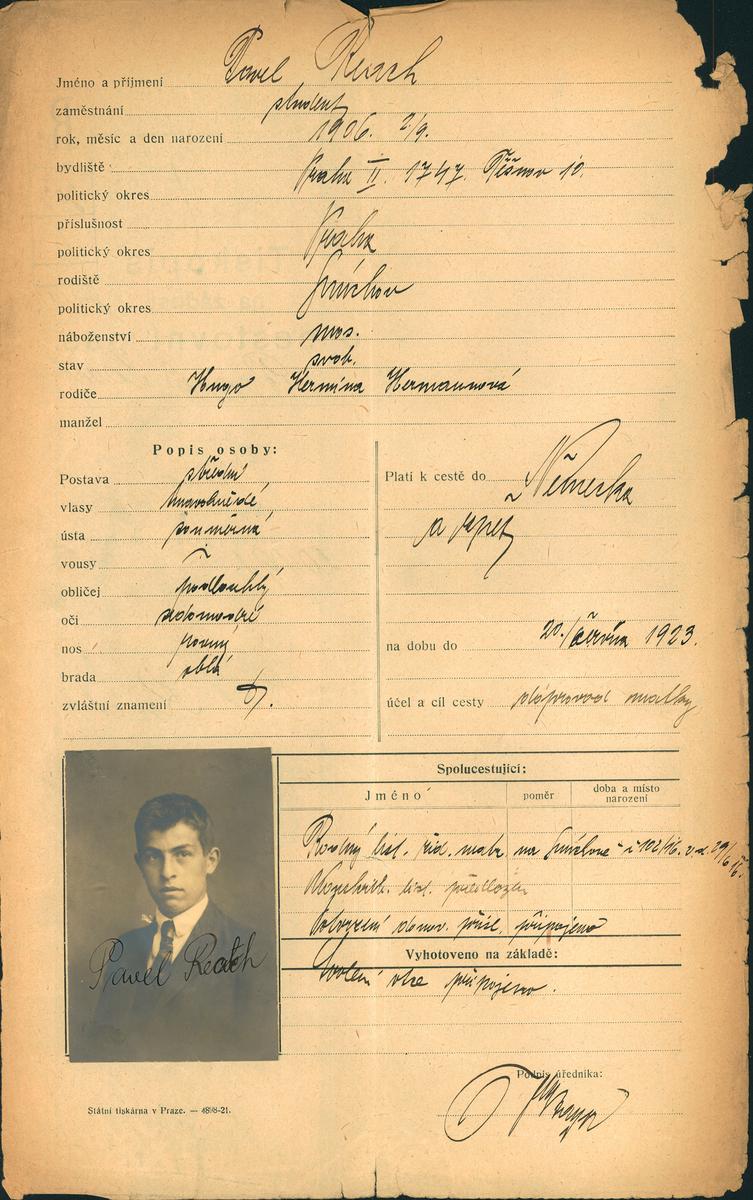 Jméno a příjmení Pavel Reach
zaměstnání student
rok, měsíc a den narození 1906. 2/9.
bydliště Praha II. 1747. Těšnov 10.
politický okres
příslušnost
politický okres Praha
rodiště Smíchov
politický okres
náboženství mos.
stav svob.
rodiče Hugo Hermína Hermannová
manžel
Popis osoby:
Postava střední
vlasy tmavohnědé
ústa souměrná
vousy
obličej podlouhlý
oči šedomodré
nos rovný
brada oblá
zvláštní znamení
Platí k cestě do Německa
a zpět
na dobu do 20. června 1923.
účel a cíl cesty doprovod matky
Spolucestující:
Jméno poměr doba a místo narození
Rodný list. žid. matr. na Smíchově
list. předložen
Potvrzení domov. přísl. připojeno
Vyhotoveno na základě:
Svolení otce připojeno.
Pavel Reach
Podpis úředníka:
Státní tiskárna v Praze. — 4898-21.